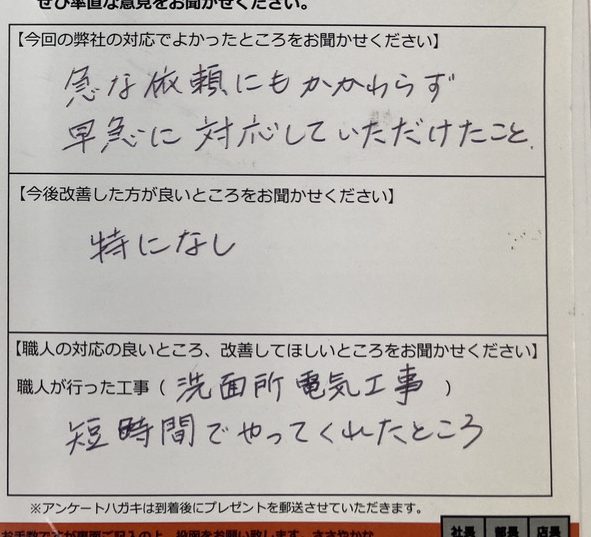 ぜひ率直な意見をお聞かせください。
【今回の弊社の対応でよかったところをお聞かせください】
急な依頼にもかかわらず
早急に対応していただけたこと.
【今後改善した方が良いところをお聞かせください】
特になし
【職人の対応の良いところ、改善してほしいところをお聞かせください】
職人が行った工事（洗面所電気工事）
短時間でやってくれたところ
※アンケートハガキは到着後にプレゼントを郵送させていただきます。
社長 部長 店長